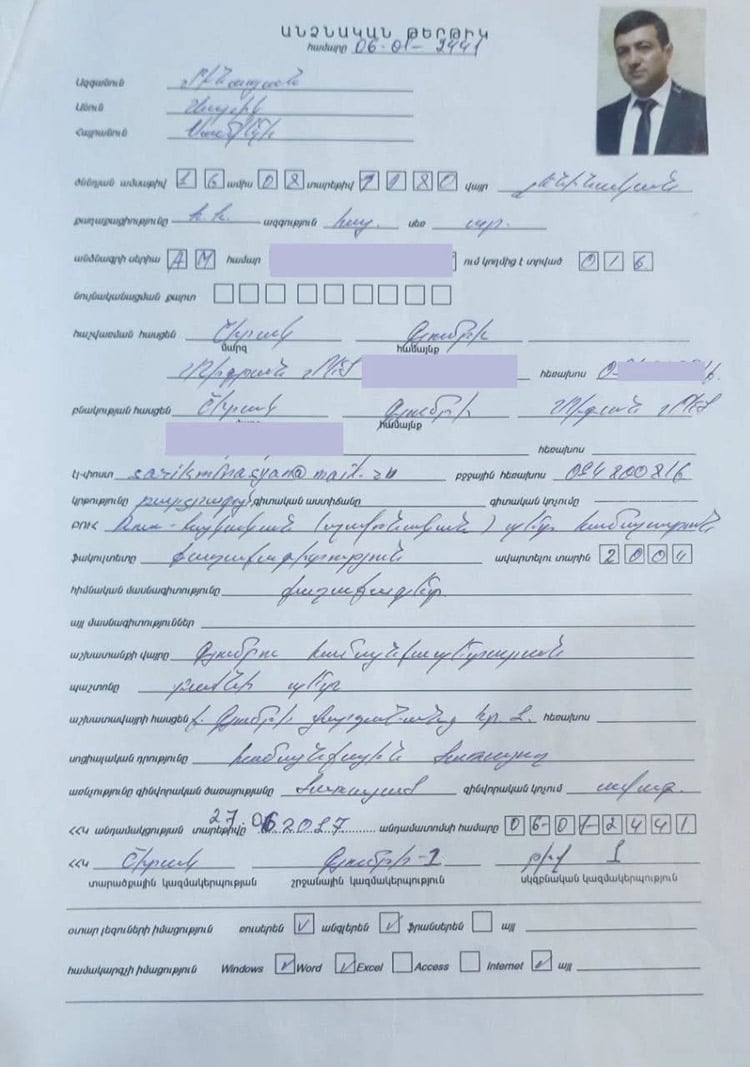 ԱՆՁՆԱԿԱՆ ԹԵՐԹԻԿ
համարը 06-01-2441
Ազգանուն Մինասյան
Անուն Սարիկ
Հայրանուն
ծննդյան ամսաթիվ 16 ամիս 08 տարեթիվ 1980 վայր Լենինական
քաղաքացիությունը Հ.Հ. ազգություն հայ. սեռ ար.
անձնագրի սերիա AM համար ում կողմից է տրված 016
նույնականացման քարտ
հաշվառման հասցեն Շիրակ Գյումրի
մարզ համայնք
հեռախոս
բնակության հասցեն Շիրակ Գյումրի
համայնք
հեռախոս
էլ-փոստ sarikminasyan@mail.ru բջջային հեռախոս 094800816
կրթությունը բարձրագույն գիտական աստիճանը գիտական կոչումը
ԲՈՒՀ Ռուս-հայկական (սլավոնական) պետ. համալսարան
ֆակուլտետը քաղաքագիտություն ավարտելու տարին 2004
հիմնական մասնագիտությունը քաղաքագետ
այլ մասնագիտություններ
աշխատանքի վայրը Գյումրու համայնքապետարան
պաշտոնը բաժնի պետ
աշխատավայրի հասցեն ք. Գյումրի Վարդանանց հր. 1 հեռախոս
սոցիալական դրությունը համայնքային ծառայող
առնչությունը զինվորական ծառայությանը ծառայած զինվորական կոչում ավագ.
ՀՀԿ անդամակցության տարեթիվը 27.06.2017 անդամատոմսի համարը 06-01-2441
ՀՀԿ Շիրակ Գյումրի-1 թիվ 1
տարածքային կազմակերպության շրջանային կազմակերպություն սկզբնական կազմակերպություն
օտար լեզուների իմացություն ռուսերեն ✓ անգլերեն ✓ ֆրանսերեն այլ
համակարգչի իմացություն Windows ✓ Word ✓ Excel Access Internet ✓ այլ